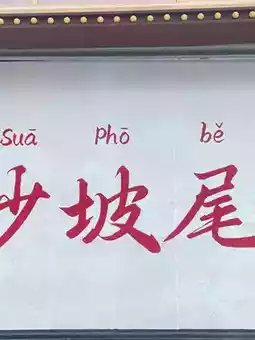 Suā Phō bě
沙坡尾